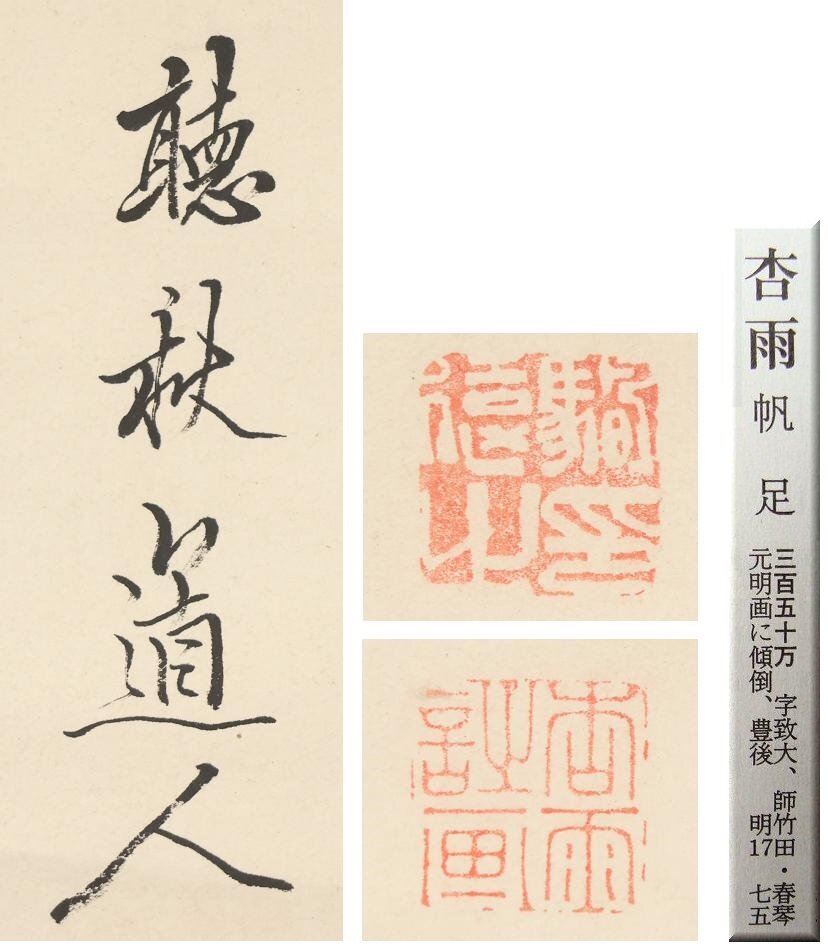 聴秋道人
杏雨
杏雨 帆足
三百五十万 字致大、師竹田・春琴
元明画に傾倒、豊後 明17 七五